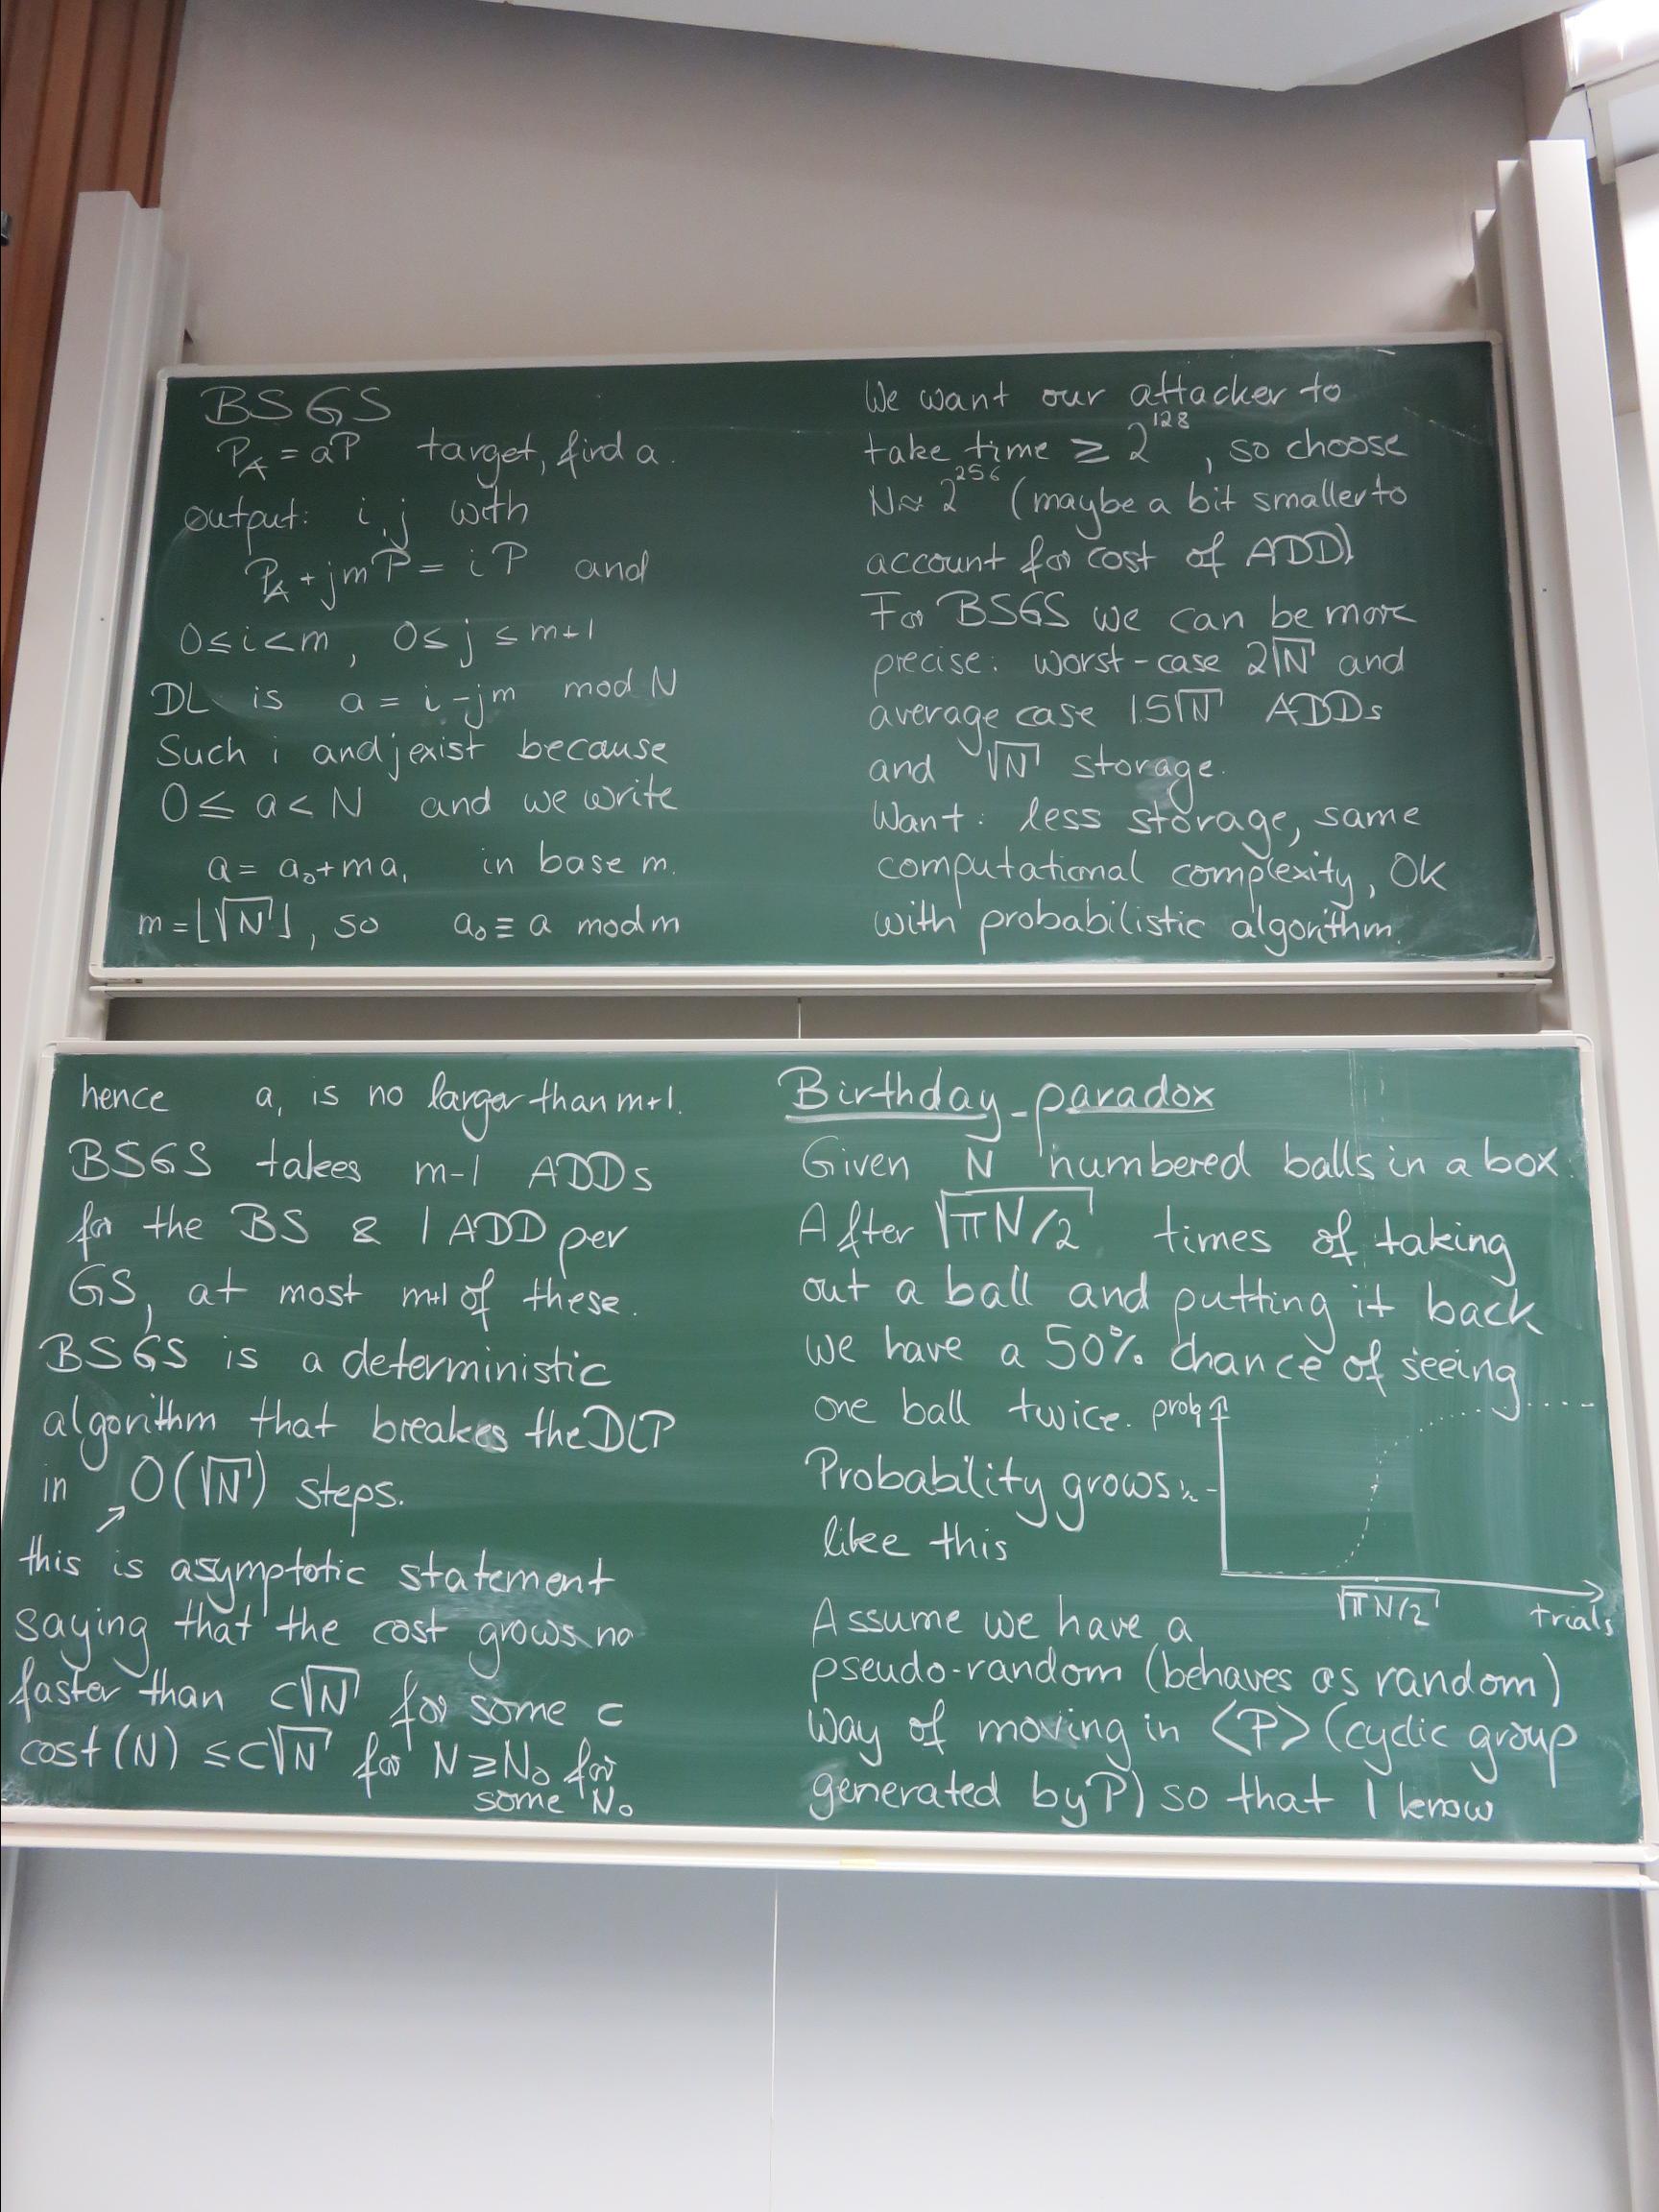 BSGS
P_A = aP target, find a.
output: i, j with
P_A + jmP = iP and
0 ≤ i < m, 0 ≤ j ≤ m+1
DL is a = i - jm mod N
Such i and j exist because
0 ≤ a < N and we write
a = a₀ + ma₁ in base m.
m = ⌊√N⌋, so a₀ ≡ a mod m
We want our attacker to
take time ≥ 2^128, so choose
N ≈ 2^256 (maybe a bit smaller to
account for cost of ADD)
For BSGS we can be more
precise: worst-case 2√N and
average case 1.5√N ADDs
and √N storage.
Want: less storage, same
computational complexity, OK
with probabilistic algorithm.
hence a₁ is no larger than m+1.
BSGS takes m-1 ADDs
for the BS & 1 ADD per
GS, at most m+1 of these.
BSGS is a deterministic
algorithm that breakes the DLP
in O(√N) steps.
this is asymptotic statement
saying that the cost grows no
faster than c√N for some c
cost(N) ≤ c√N for N ≥ N₀ for
some N₀
Birthday-paradox
Given N numbered balls in a box
After √πN/2 times of taking
out a ball and putting it back
we have a 50% chance of seeing
one ball twice. prob
Probability grows
like this
√πN/2
trials
Assume we have a
pseudo-random (behaves as random)
way of moving in <P> (cyclic group
generated by P) so that I know